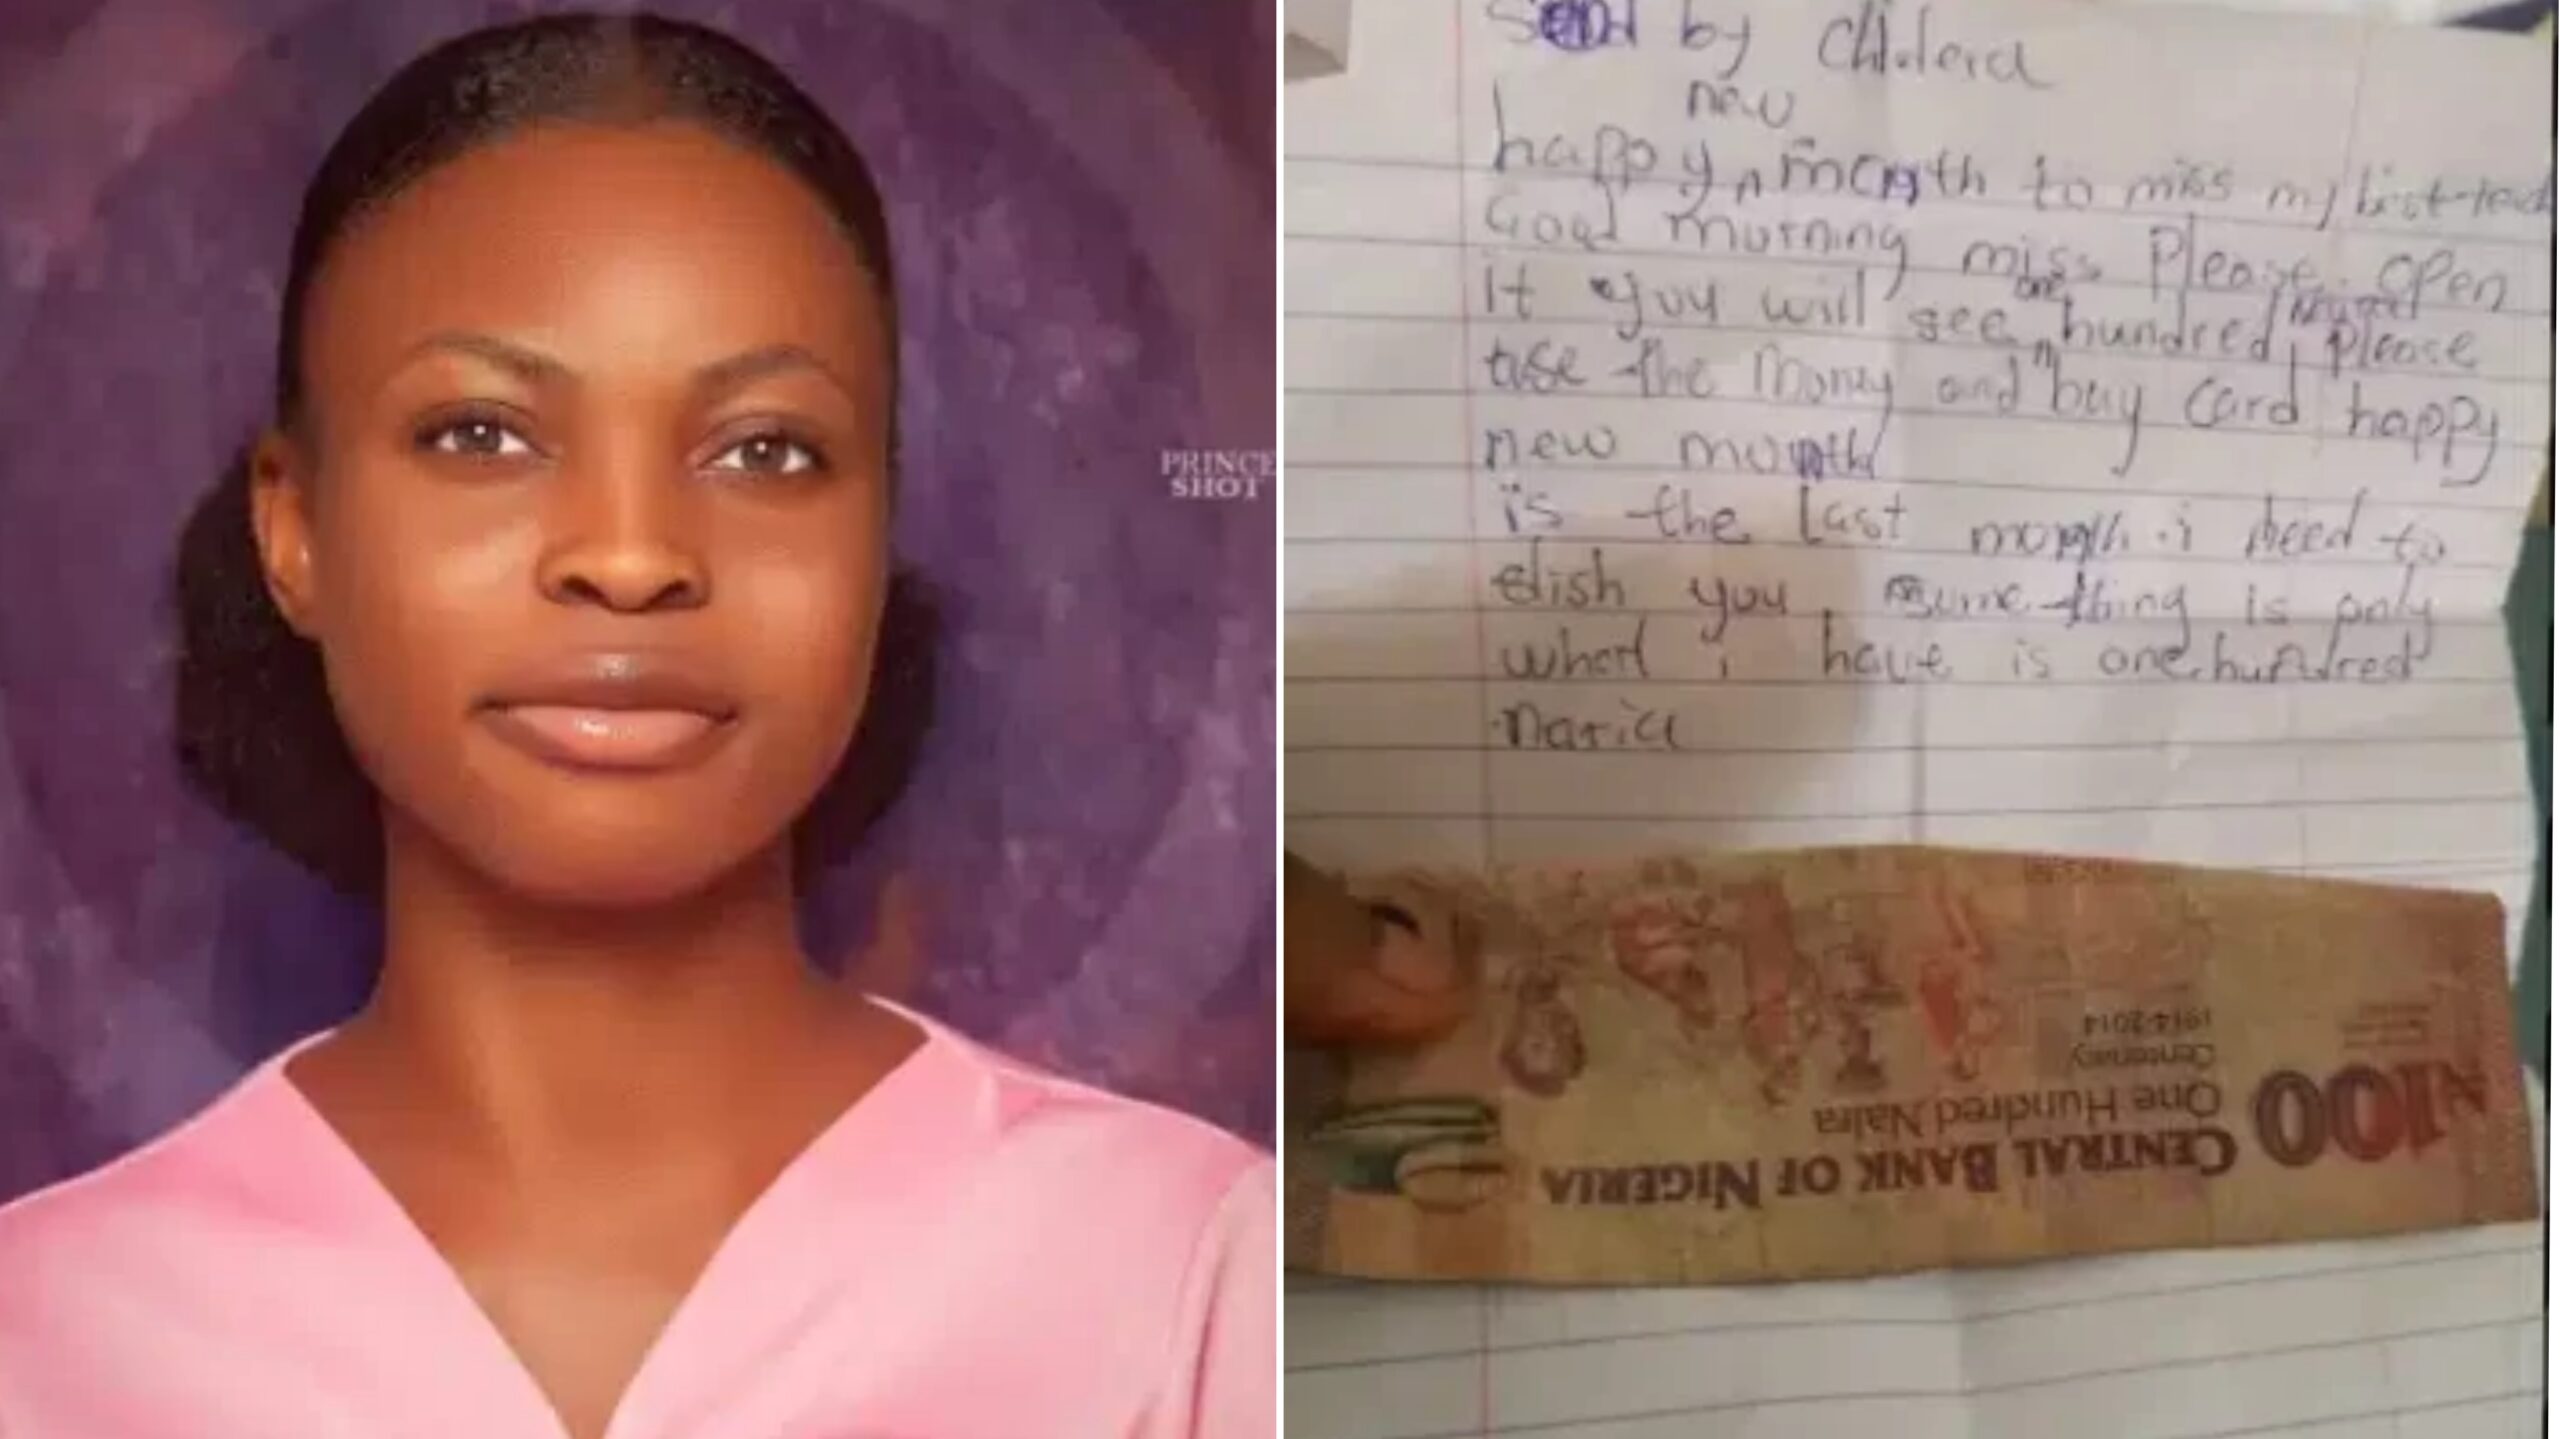 PRINCE
SHOT
Send by Chidera
happy new month to miss my best teach
Good morning miss Please open
It you will see one hundred please
use the money and buy card happy
new month
is the last month i need to
dish you some thing is only
what i have is one hundred
naria
₦100
CENTRAL BANK OF NIGERIA
One Hundred Naira
Centenary
1914-2014